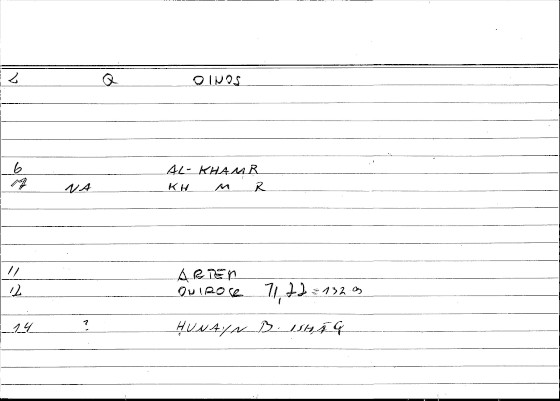 2 Q OINOS
6 AL-KHAMR
NA KH M R
11 ARTEM
12 OUIROC 71,22=132 9
14 ? ḤUNAYN B. ISḤĀQ